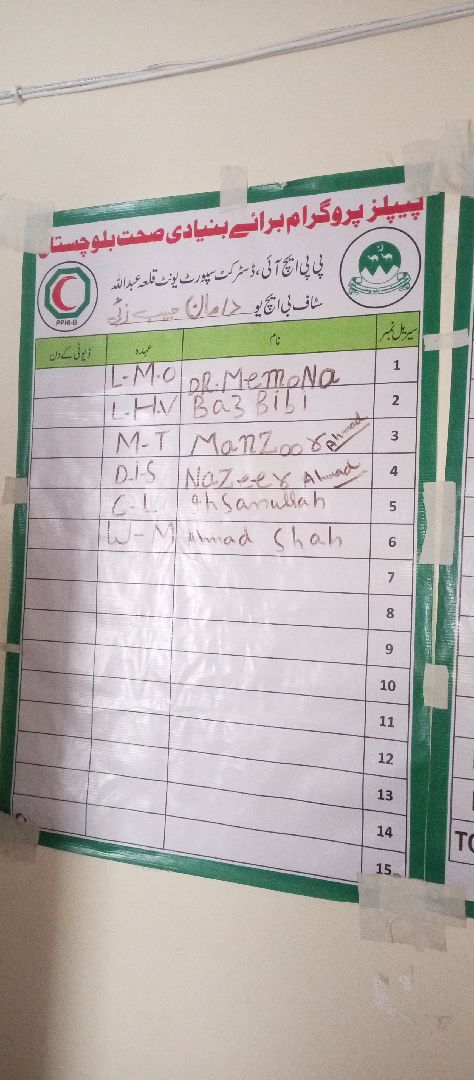 پیپلز پروگرام برائے بنیادی صحت بلوچستان
پی پی ایچ آئی، ڈسٹرکٹ سپورٹ یونٹ قلعہ عبداللہ
سٹاف بی ایچ یو دامان حبیب زئی
PPHI-B
سیریل نمبر نام عہدہ ڈیوٹی کے دن
1 DR.MemoNa L-M-O
2 Baz Bibi L-H.V
3 Manzoor Ahmad M-T
4 Nazeer Ahmad D.I-S
5 IhSanullah C-L
6 Ahmad Shah W-M
7
8
9
10
11
12
13
14
15
TO